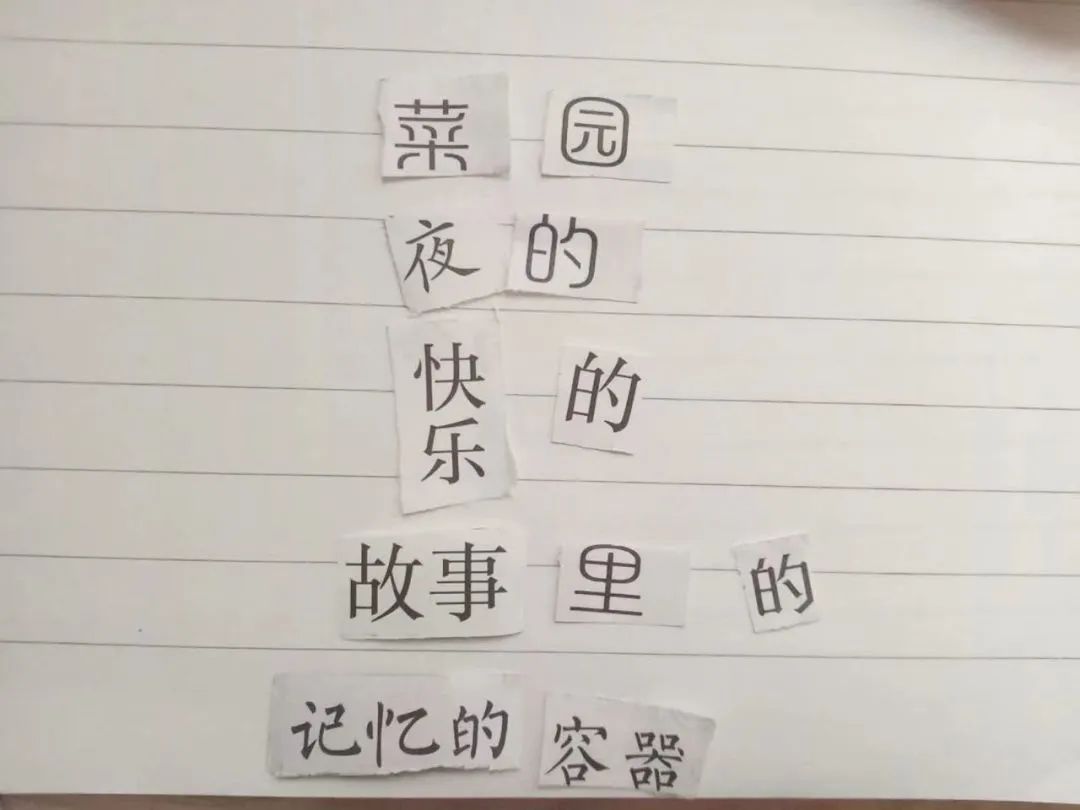 菜园
夜的
快乐的
故事里的
记忆的容器